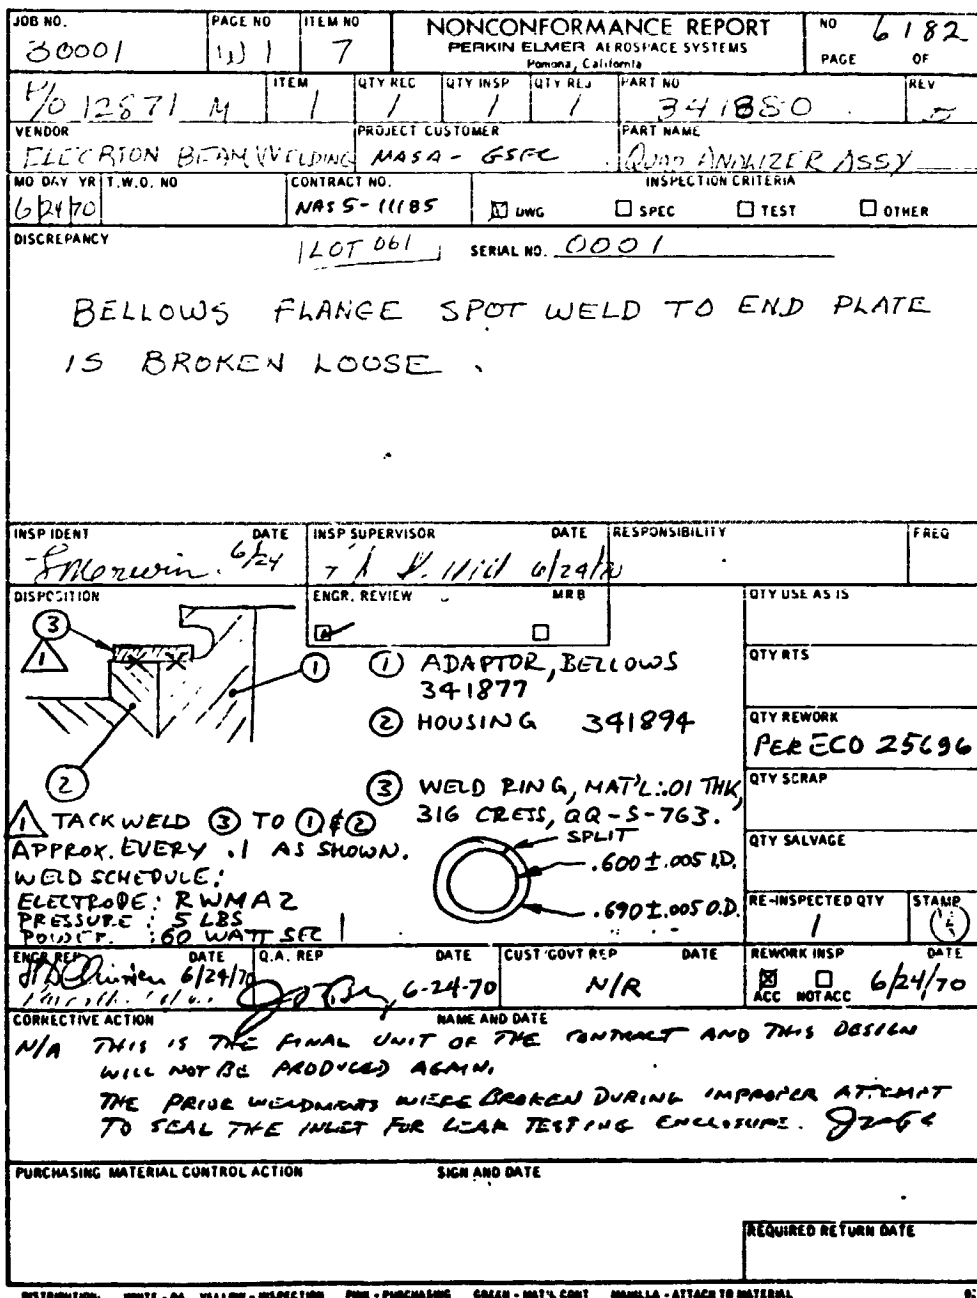 JOB NO. 30001
PAGE NO 1
ITEM NO 7
NONCONFORMANCE REPORT
PERKIN ELMER AEROSPACE SYSTEMS
Pomona, California
NO 6182
PAGE OF
P/O 12871 M
ITEM 1
QTY REC 1
QTY INSP 1
QTY REJ 1
PART NO 341880
REV
VENDOR
ELECRTON BEAM WELDING
PROJECT CUSTOMER
NASA - GSFC
PART NAME
QUAD ANALIZER ASSY
MO DAY YR 6/24/70
T.W.O. NO
CONTRACT NO.
NAS 5-11185
INSPECTION CRITERIA
DWG SPEC TEST OTHER
DISCREPANCY
LOT 061 SERIAL NO. 0001
BELLOWS FLANGE SPOT WELD TO END PLATE
IS BROKEN LOOSE.
INSP IDENT DATE 6/24
INSP SUPERVISOR DATE 6/24/70
RESPONSIBILITY
FREQ
DISPOSITION
ENGR. REVIEW MRB
3
1
1
2
1 ADAPTOR, BELLOWS
341877
2 HOUSING 341894
3 WELD RING, MAT'L: .01 THK,
316 CRESS, QQ-S-763.
SPLIT
.600±.005 I.D.
.690±.005 O.D.
1 TACK WELD 3 TO 1 & 2
APPROX. EVERY .1 AS SHOWN.
WELD SCHEDULE:
ELECTRODE: RWMA 2
PRESSURE: 5 LBS
POWER: 60 WATT SEC
QTY USE AS IS
QTY RTS
QTY REWORK
PER ECO 25696
QTY SCRAP
QTY SALVAGE
RE-INSPECTED QTY 1
STAMP
ENGR REP DATE 6/24/70
Q.A. REP DATE 6-24-70
CUST/GOVT REP DATE
N/R
REWORK INSP DATE
ACC NOT ACC 6/24/70
CORRECTIVE ACTION NAME AND DATE
N/A THIS IS THE FINAL UNIT OF THE CONTRACT AND THIS DESIGN
WILL NOT BE PRODUCED AGAIN.
THE PRIOR WELDMENTS WERE BROKEN DURING IMPROPER ATTEMPT
TO SEAL THE INLET FOR LEAK TESTING ENCLOSURE.
PURCHASING MATERIAL CONTROL ACTION SIGN AND DATE
REQUIRED RETURN DATE
DISTRIBUTION: WHITE - QA YELLOW - INSPECTION PINK - PURCHASING GREEN - MAT'L CONT MANILLA - ATTACH TO MATERIAL